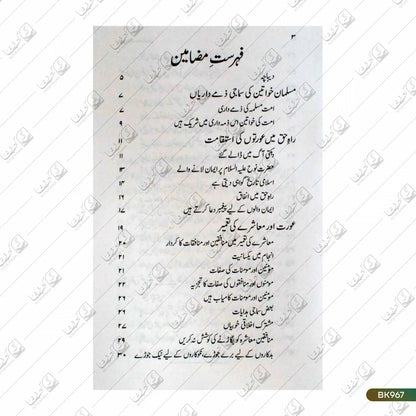 ۳
فہرستِ مضامین
دیباچہ ۵
مسلمان خواتین کی سماجی ذمے داریاں ۷
امت مسلمہ کی ذمے داری ۷
امت کی خواتین اس ذمہ داری میں شریک ہیں ۹
راہِ حق میں عورتوں کی استقامت ۱۱
دہکتی آگ میں ڈالے گئے ۱۱
حضرت نوح علیہ السلام پر ایمان لانے والے ۱۳
اسلامی تاریخ گواہی دیتی ہے ۱۴
راہِ حق میں انفاق ۱۶
ایمان والوں کے لیے پیغمبر دعا کرتے ہیں ۱۷
عورت اور معاشرے کی تعمیر ۱۹
معاشرے کی تعمیر میں منافقین اور منافقات کا کردار ۲۰
انجام میں یکسانیت ۲۱
مومنین اور مومنات کی صفات ۲۱
مومنات اور منافقوں کی صفات کا تجزیہ ۲۲
مومنین اور مومنات کامیاب ہیں ۲۴
بعض سماجی ہدایات ۲۶
مشترک اخلاقی خوبیاں ۲۷
منافقین معاشرہ کو بگاڑنے کی کوشش نہ کریں ۲۹
بدکاروں کے لیے برے جوڑے، نکوکاروں کے لیے نیک جوڑے ۳۰
BK967